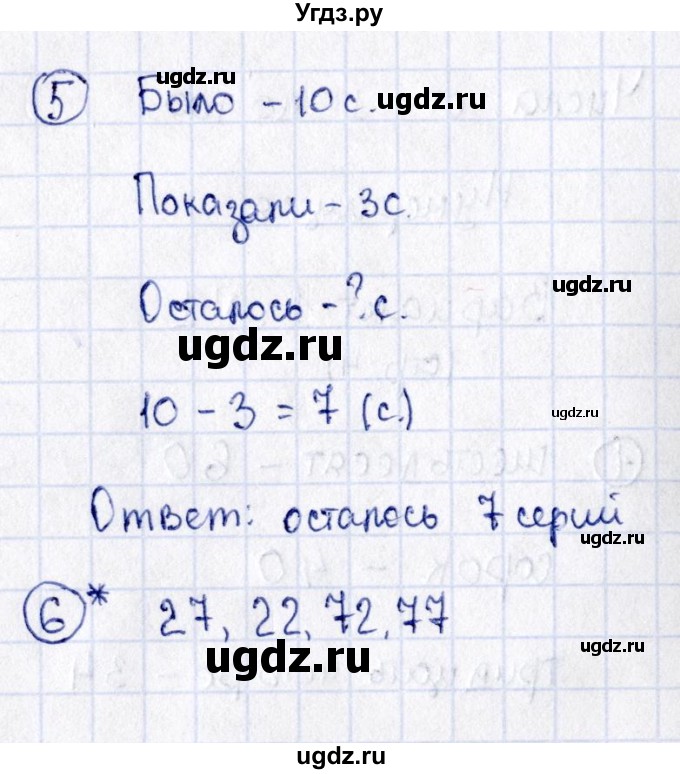 Угдз.ру
ugdz.ru
5 Было - 10 с. ugdz.ru
Показали - 3 с.
Осталось - ? с. ugdz.ru
ugdz.ru
10 - 3 = 7 (с.) ugdz.ru
Ответ: осталось 7 серий
ugdz.ru
6* 27, 22, 72, 77
ugdz.ru
ugdz.ru